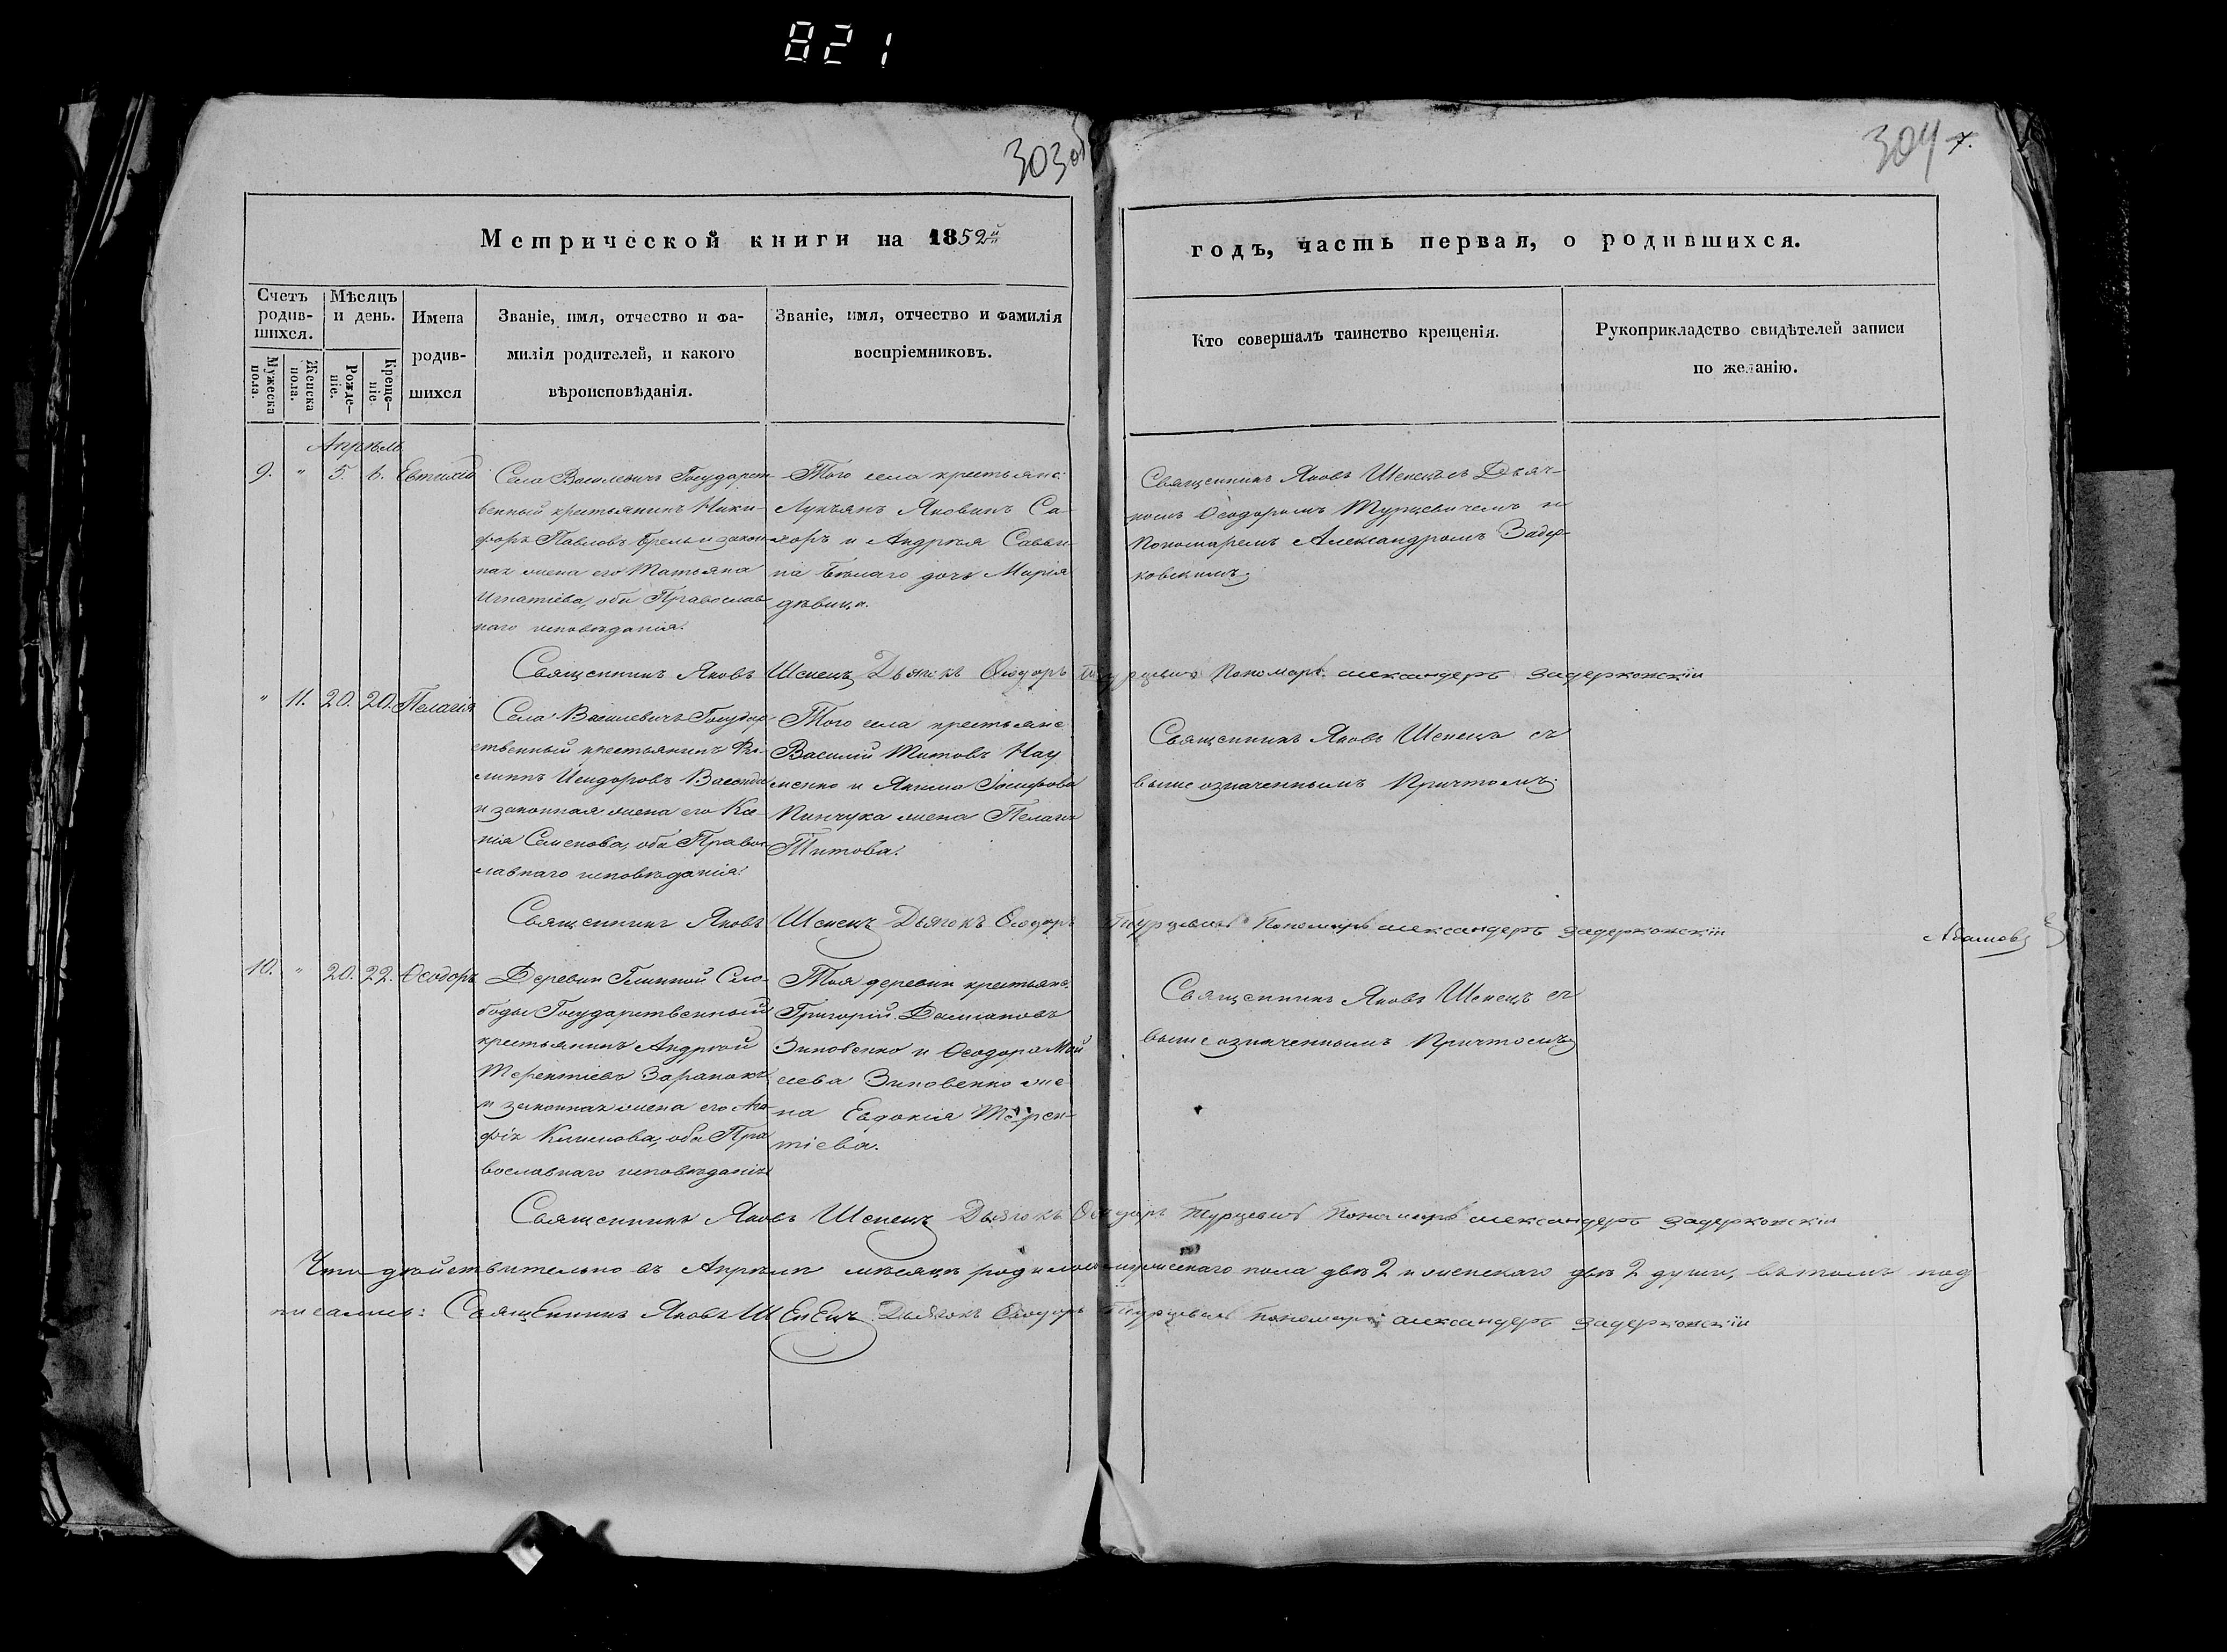 821
303 об
304 7.
Метрической книги на 1852й
годъ, часть первая, о родившихся.
Счетъ родив-шихся.
Мужеска пола.
Женска пола.
Мѣсяцъ и день.
Рожде-ніе.
Креще-ніе.
Имена
родив-
шихся
Званіе, имя, отчество и фа-
милія родителей, и какого
вѣроисповѣданія.
Званіе, имя, отчество и фамилія
воспріемниковъ.
Кто совершалъ таинство крещенія.
Рукоприкладство свидѣтелей записи
по желанію.
Апрѣль
9. " 5. 6. Евтихій
Села Василевичъ Государст-
венный крестьянинъ Ники-
форъ Павловъ Брель и закон-
ная жена его Татьяна
Игнатіева, оба Православ
наго исповѣданія.
Того села крестьяне:
Лукъянъ Яковинъ Са-
харъ и Андрѣя Савви-
на Бѣлаго дочь Марія
дѣвица.
Священникъ Яковъ Шепецъ съ Дьяч-
комъ Ѳеодоромъ Турцевичемъ и
Пономаремъ Александромъ Задер-
ковскимъ.
Священникъ Яковъ Шепецъ Дьячокъ Ѳеодоръ Турцевичъ Пономарь александеръ задерковскіи
" 11. 20. 20. Пелагія
Села Василевичъ Государ
ственный крестьянинъ Фи-
липпъ Исидоровъ
и законная жена его Ксе-
нія Семенова, оба Право
славнаго исповѣданія.
Того села крестьяне
Василий Титовъ Нау
менко и Якима Іосифова
Пинчука жена Пелагія
Титова.
Священникъ Яковъ Шепецъ съ
выше означеннымъ Причтомъ.
Священникъ Яковъ Шепецъ Дьячокъ Ѳеодоръ Турцевичъ Пономарь александеръ задерковскіи
10. " 20. 22. Ѳеодоръ
Деревни Глинной Сло-
боды Государственный
крестьянинъ Андрѣй
Терентіевъ
и законная жена его
Климова, оба Пра
вославнаго исповѣданія
Тоя деревни крестьяне:
Григорій Даміановъ
Зиновенко и Ѳеодора Мой
сеева Зиновенко же
на Евдокія Терен-
тіева.
Священникъ Яковъ Шепецъ съ
выше означеннымъ Причтомъ
Священникъ Яковъ Шепецъ Дьячокъ Ѳеодоръ Турцевичъ Пономарь александеръ задерковскіи
Что дѣйствительно въ Апрѣлѣ мѣсяцѣ родилось мужескаго пола двѣ 2 и женскаго двѣ 2 души, въ томъ под
писались: Священникъ Яковъ Шепецъ Дьячокъ Ѳеодоръ Турцевичъ Пономарь александеръ задерковскіи